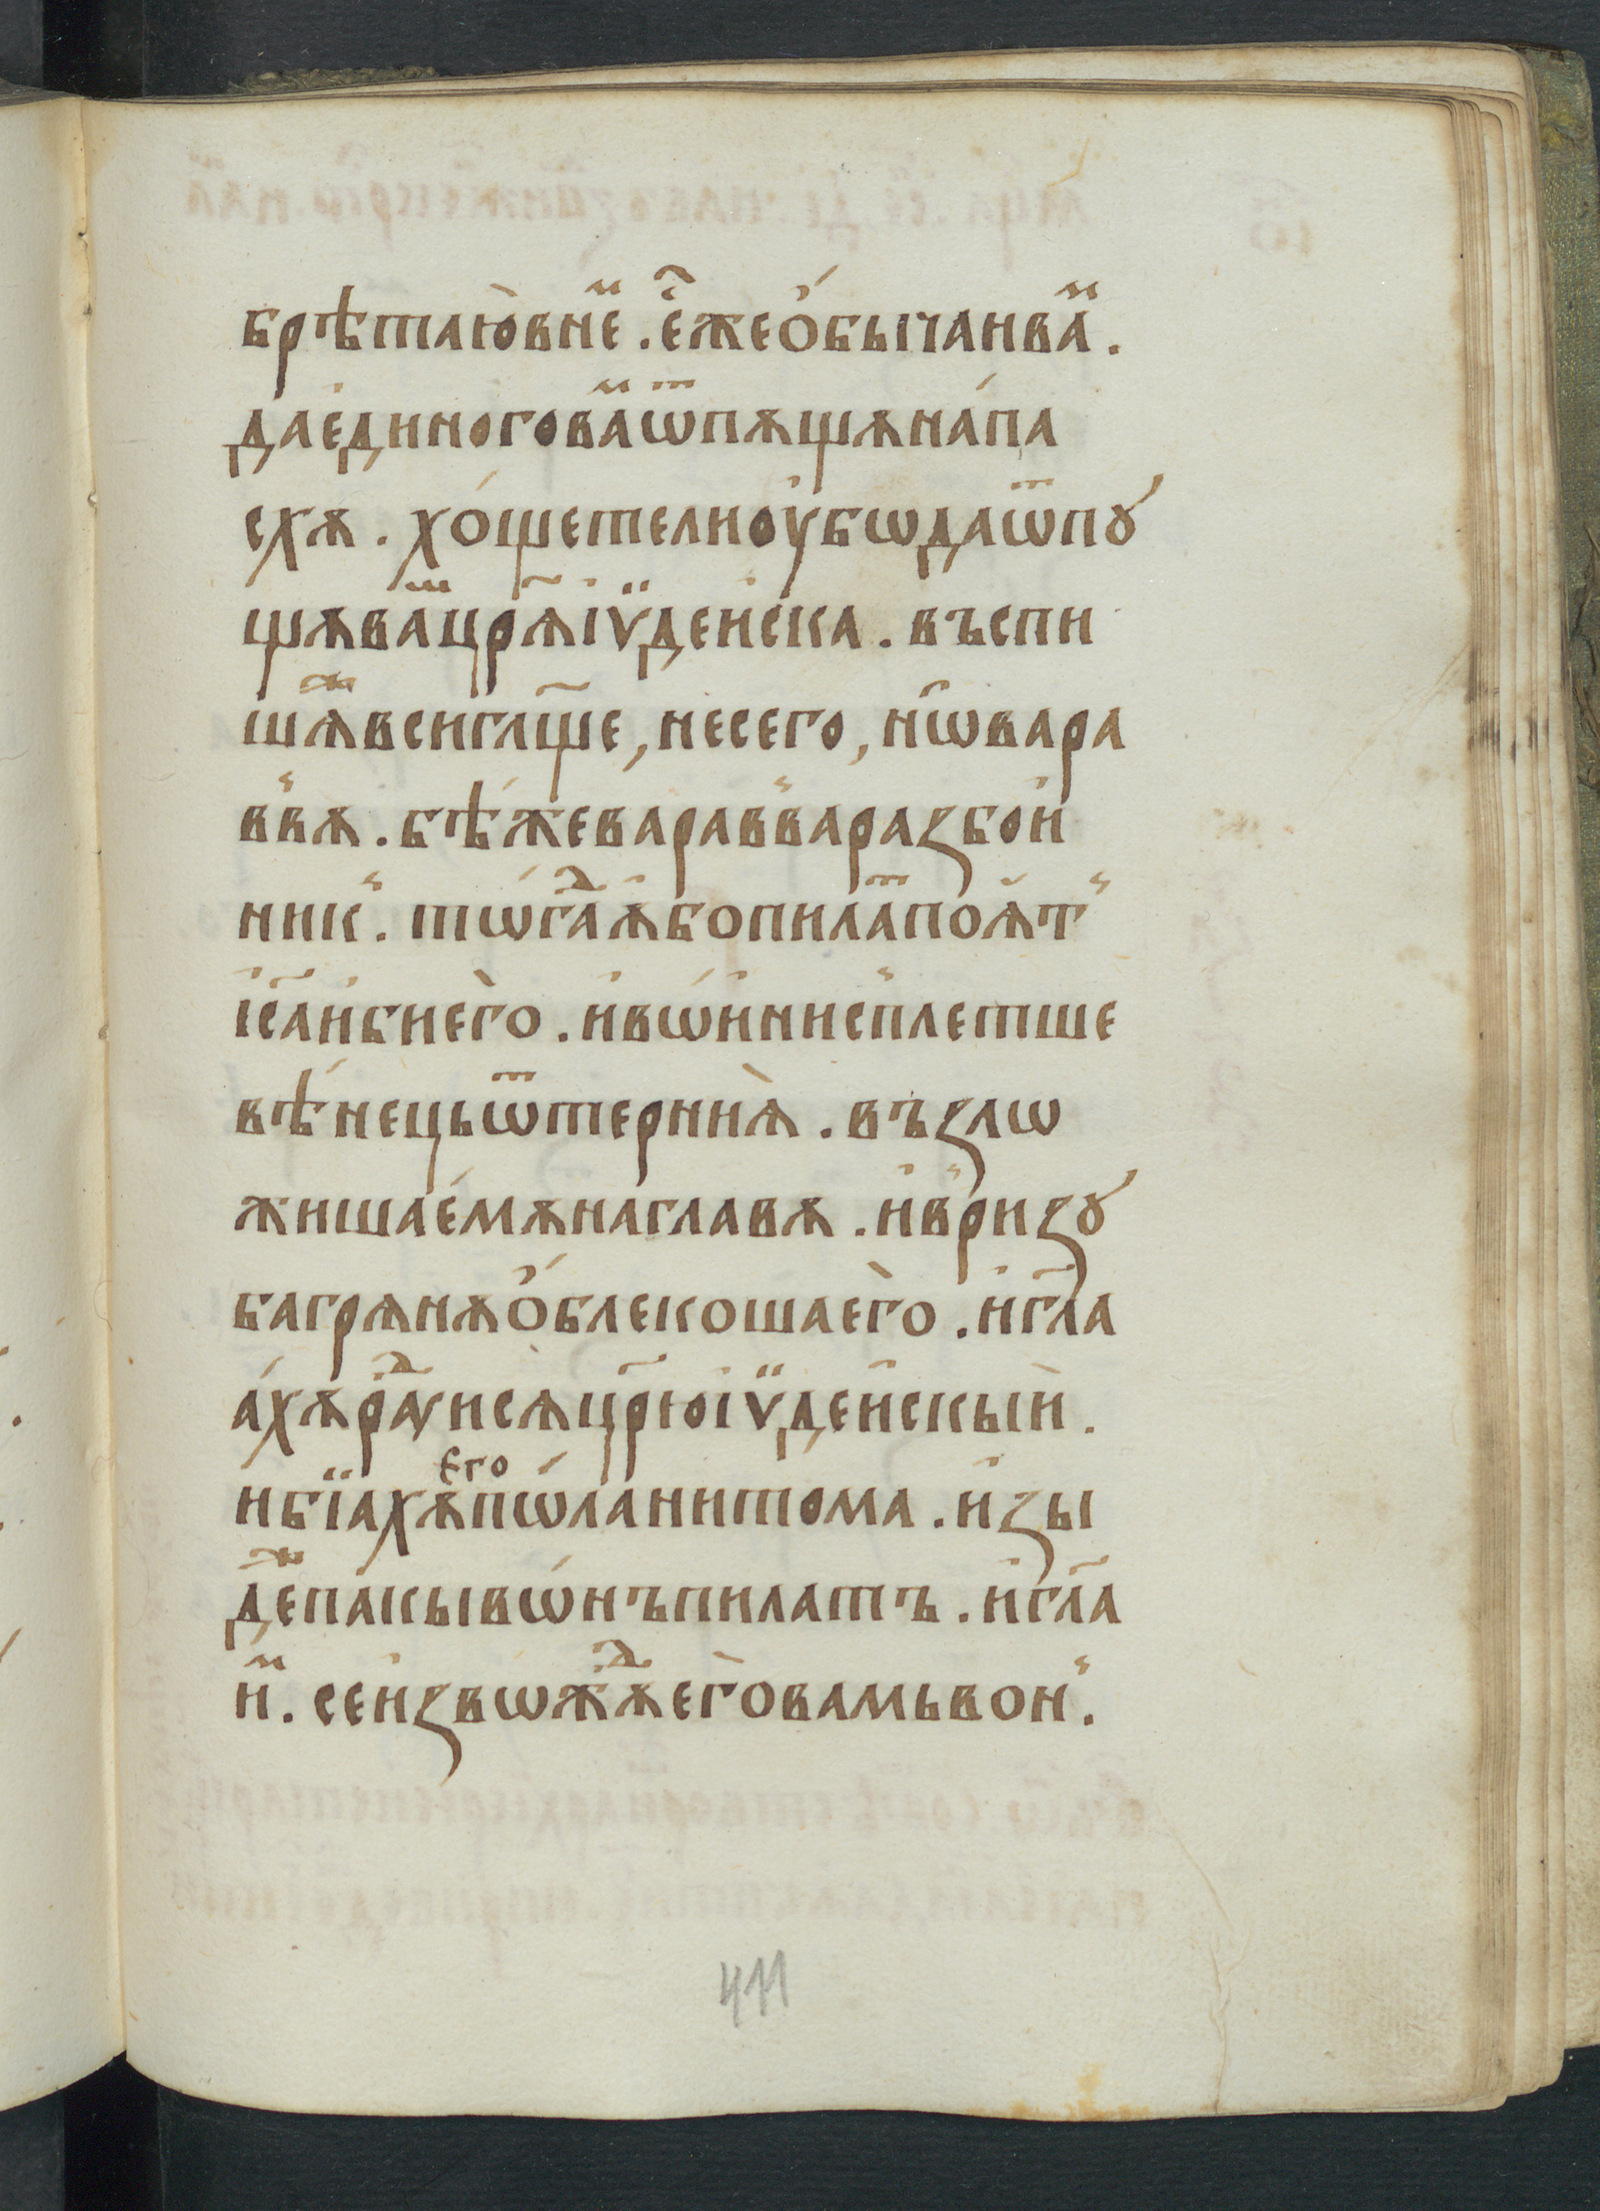 брѣтаю̀внеⷨ. є҆́жео҆́бычанваⷨ.
дає҆диноговаⷨѿпꙋщꙋна́па
схѫ. хо́щетелиоу҆бѡдаѿпꙋ
щѫваⷨцр҃ѧіѵ̈деи҆ска. въспи
шѫⷤвсиглщ҃е, несего, нѡ̑вара
в̾вѫ. бѣ́жеварав̾вараꙁбои҆
ник̾. тѡ́гаⷣꙗ҆бопила́ⷮпоѧ҆́т̾
іс҃аи҆биего̀. и҆вѡ́и҆нис̾плетше
вѣ́нецьѿтернїѧ̀. въꙁлѡ
жишає҆мѫнаглавѫ. и҆в̾риꙁꙋ
багрѧнѫо҆́блекошаего̀. и҆гл҃а
а́хѫраⷣуисѧцр҃юіѵ̈деи҆скыи̇.
ибїахѫ҆пѡ́ланитома. и҆ꙁы
его
деⷤпа́кывѡ́нъпилатъ. и҆гл҃а
иⷨ. сеи҆ꙁвѡжⷣѫего̀вамьвон̾.
411